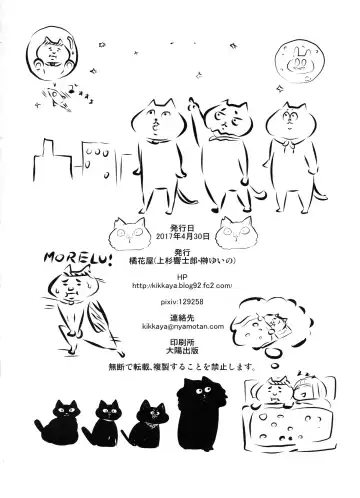 MORELU!
発行日
2017年4月30日
発行
橘花屋(上杉響士郎・榊ゆいの)
HP
http://kikkaya.blog92.fc2.com/
pixiv:129258
連絡先
kikkaya@nyamotan.com
印刷所
大陽出版
無断で転載、複製することを禁止します。